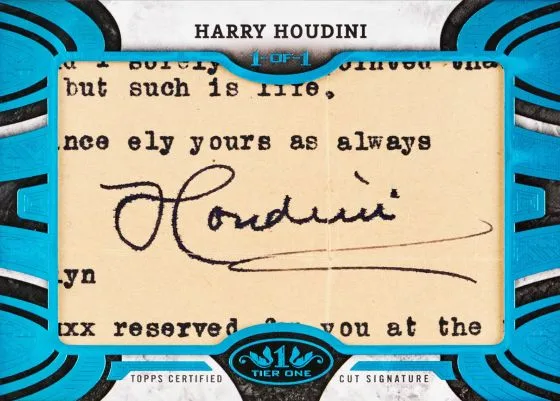 HARRY HOUDINI
1-OF-1
d I sorely ointed tha
but such is life,
nce ely yours as always
Houdini
lyn
xx reserved for you at the
1
TIER ONE
TOPPS CERTIFIED CUT SIGNATURE